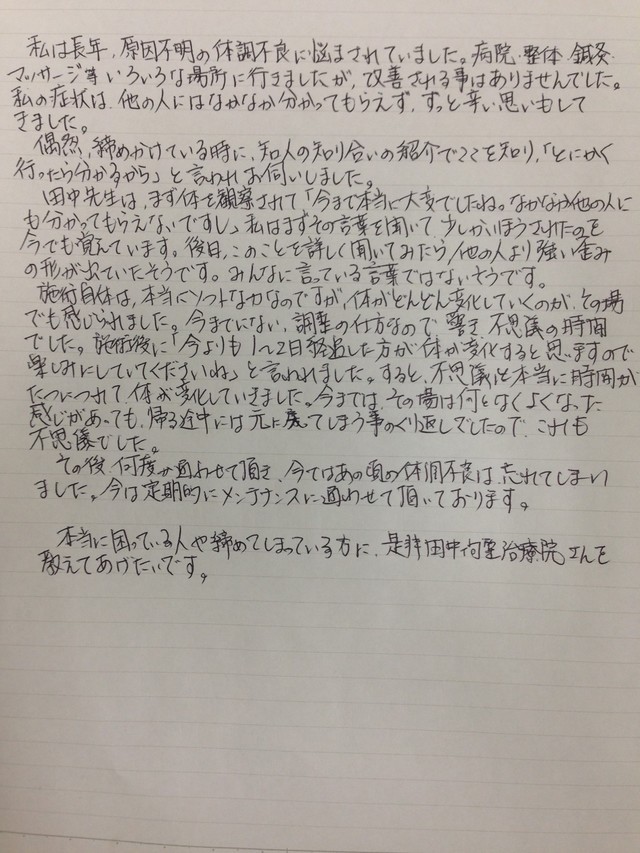 私は長年、原因不明の体調不良に悩まされていました。病院・整体・鍼灸・
マッサージ等いろいろな場所に行きましたが、改善される事はありませんでした。
私の症状は、他の人にはなかなか分かってもらえず、ずっと辛い思いもして
きました。
偶然、締めかけている時に、知人の知り合いの紹介でここを知り、「とにかく
行ったら分かるから」と言われお伺いしました。
田中先生は、まず体を観察されて「今まで本当に大変でしたね。なかなか他の人に
も分かってもらえないですし」私はまずその言葉を聞いて、少しかいほうされたのを
今でも覚えています。後日、このことを詳しく聞いてみたら、他の人より強い歪み
の形が出ていたそうです。みんなに言っている言葉ではないそうです。
施術自体は、本当にソフトなかなのですが、体がどんどん変化していくのが、その場
でも感じられました。今までにない、調整の仕方なので、驚き、不思議の時間
でした。施術後に「今よりも1〜2日経過した方が体が変化すると思いますので
楽しみにしていてくださいね」と言われました。すると、不思議と本当に時間が
たつにつれて、体が変化していきました。今までは、その場は何となくよくなった
感じがあっても、帰る途中には元に戻てしまう事のくり返しでしたので、これも
不思議でした。
その後、何度か通わせて頂き、今ではあの頃の体調不良は、忘れてしまい
ました。今は定期的にメンテナンスに通わせて頂いております。
本当に困っている人や締めてしまっている方に、是非田中治療院さんを
教えてあげたいです。